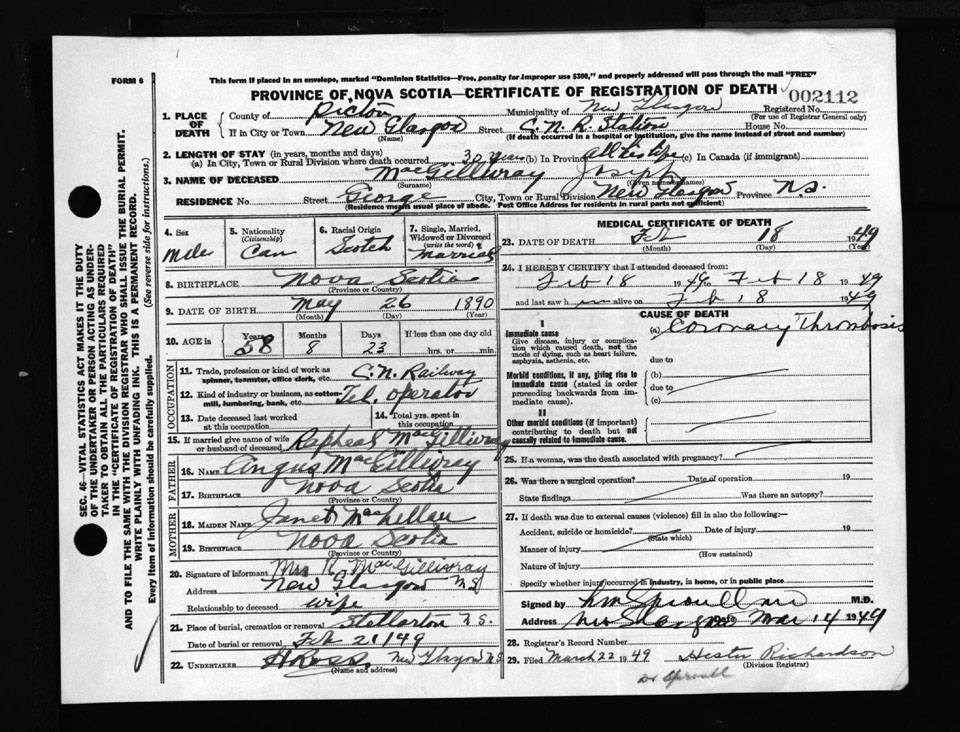 FORM 6
This form if placed in an envelope, marked "Dominion Statistics—Free, penalty for improper use $300," and properly addressed will pass through the mail "FREE"
PROVINCE OF NOVA SCOTIA—CERTIFICATE OF REGISTRATION OF DEATH
002112
1. PLACE OF DEATH
County of Pictou Municipality of New Glasgow Registered No.
(For use of Registrar General only)
If in City or Town New Glasgow Street C.N.R. Station House No.
(Name) (If death occurred in a hospital or institution, give the name instead of street and number)
2. LENGTH OF STAY (in years, months and days)
(a) In City, Town or Rural Division where death occurred 30 years (b) In Province all his life (c) In Canada (if immigrant)
3. NAME OF DECEASED MacGillivray Joseph
(Surname) (Given name or names)
RESIDENCE No. Street George City, Town or Rural Division New Glasgow Province N.S.
(Residence means usual place of abode. Post Office Address for residents in rural parts not sufficient)
4. Sex
Male
5. Nationality
(Citizenship)
Can
6. Racial Origin
Scotch
7. Single, Married, Widowed or Divorced
(write the word)
Married
8. BIRTHPLACE Nova Scotia
(Province or Country)
9. DATE OF BIRTH May 26 1890
(Month) (Day) (Year)
10. AGE in
Years Months Days If less than one day old
58 8 23 hrs. or min.
OCCUPATION
11. Trade, profession or kind of work as spinner, teamster, office clerk, etc. C.N. Railway
12. Kind of industry or business, as cotton-mill, lumbering, bank, etc. Tel. operator
13. Date deceased last worked at this occupation
14. Total yrs. spent in this occupation
15. If married give name of wife or husband of deceased Rapheal MacGillivray
FATHER
16. Name Angus MacGillivray
17. Birthplace Nova Scotia
(Province or Country)
MOTHER
18. MAIDEN NAME Janet MacLellan
19. BIRTHPLACE Nova Scotia
(Province or Country)
20. Signature of informant Mrs R. MacGillivray
Address New Glasgow N.S.
Relationship to deceased wife
21. Place of burial, cremation or removal Stellarton N.S.
Date of burial or removal Feb 21/49
22. UNDERTAKER H Ross, New Glasgow N.S.
(Name and address)
MEDICAL CERTIFICATE OF DEATH
23. DATE OF DEATH Feb 18 1949
(Month) (Day) (Year)
24. I HEREBY CERTIFY that I attended deceased from:
Feb 18 1949 to Feb 18 1949
and last saw him alive on Feb 18 1949
CAUSE OF DEATH
I
Immediate cause
Give disease, injury or complication which caused death, not the mode of dying, such as heart failure, asphyxia, asthenia, etc.
(a) Coronary Thrombosis
due to
Morbid conditions, if any, giving rise to immediate cause (stated in order proceeding backwards from immediate cause).
(b)
due to
(c)
II
Other morbid conditions (if important) contributing to death but not causally related to immediate cause.
25. If a woman, was the death associated with pregnancy?
26. Was there a surgical operation? Date of operation 19
State findings Was there an autopsy?
27. If death was due to external causes (violence) fill in also the following:—
Accident, suicide or homicide? Date of injury 19
(State which)
Manner of injury
(How sustained)
Nature of injury
Specify whether injury occurred in industry, in home, or in public place
Signed by Sproull M.D.
Address New Glasgow Date Mar 14 1949
28. Registrar's Record No.
29. Filed March 22 1949 Hester Richardson
(Division Registrar)
Dr Sproull
SEC. 46—VITAL STATISTICS ACT MAKES IT THE DUTY
OF THE UNDERTAKER OR PERSON ACTING AS UNDER-
TAKER TO OBTAIN ALL THE PARTICULARS REQUIRED
IN THE "CERTIFICATE OF REGISTRATION OF DEATH"
AND TO FILE THE SAME WITH THE DIVISION REGISTRAR WHO SHALL ISSUE THE BURIAL PERMIT.
WRITE PLAINLY WITH UNFADING INK. THIS IS A PERMANENT RECORD.
Every item of information should be carefully supplied. (See reverse side for instructions.)